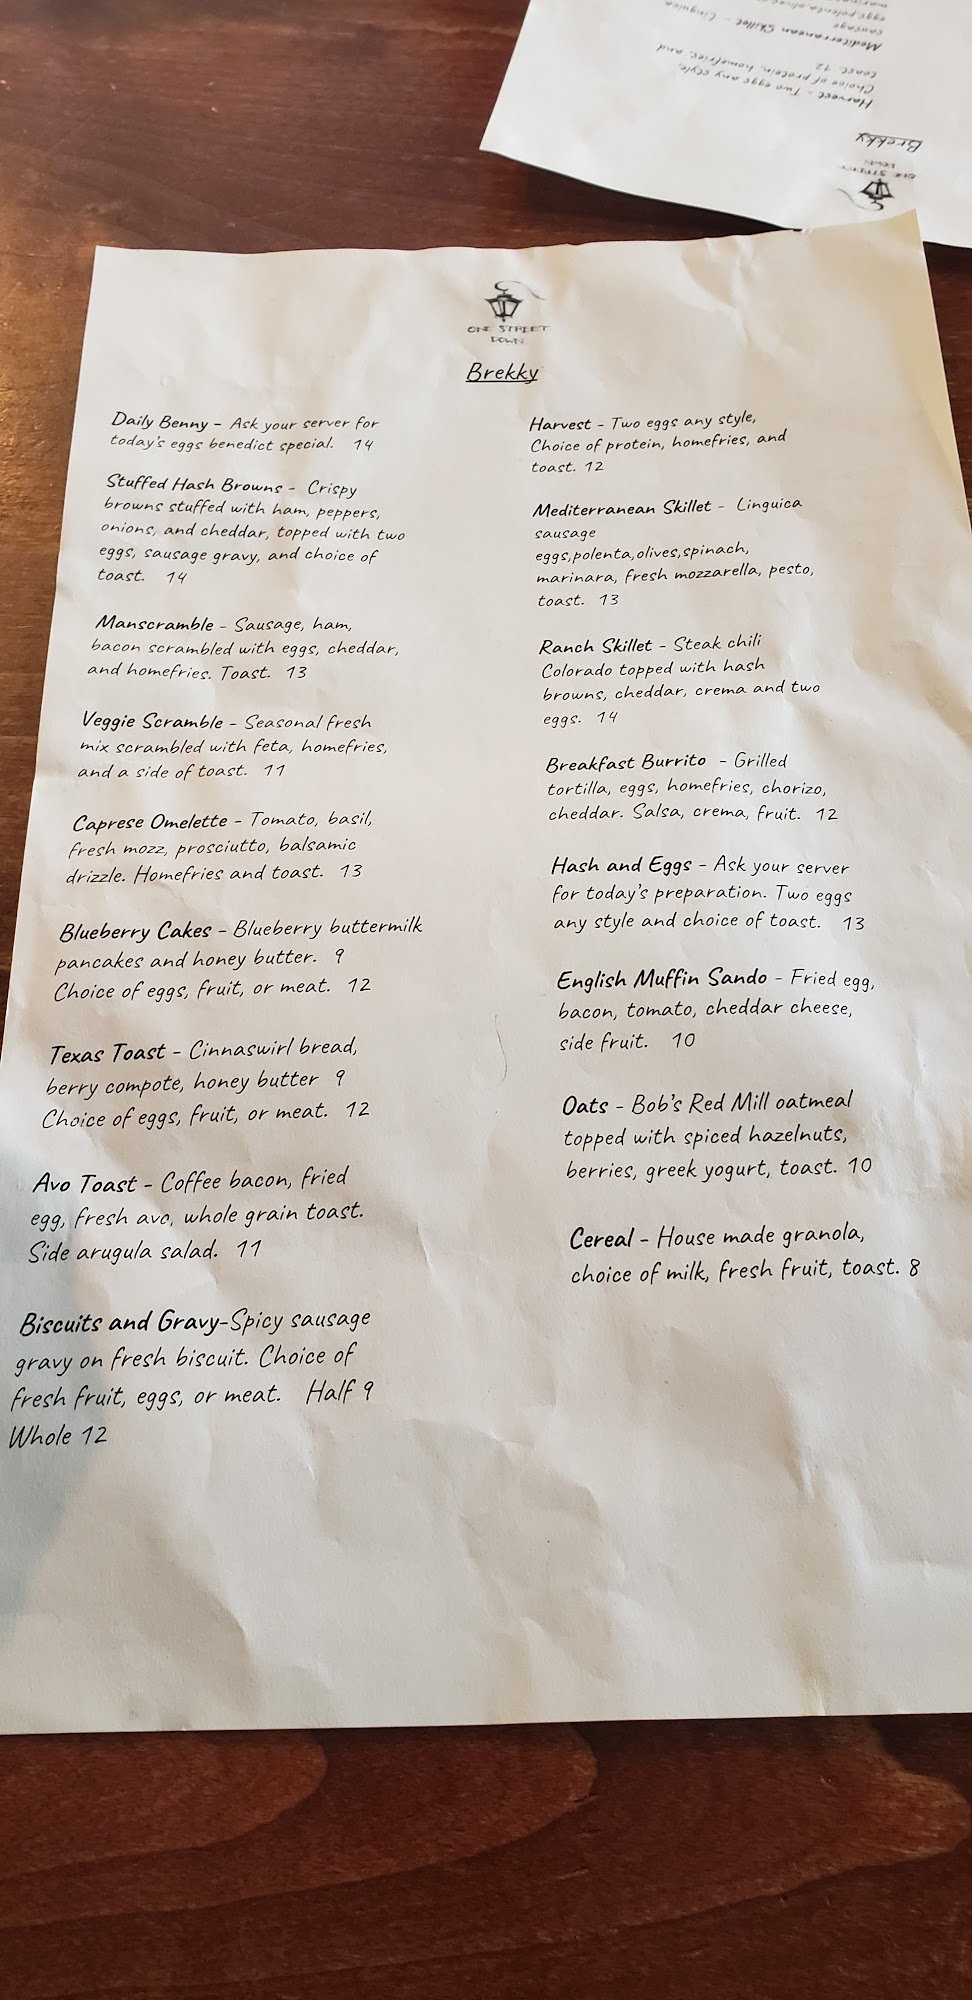 eggs,polenta,olives
sausage
Mediterranean Skillet - Linguica
toast. 12
Choice of protein, homefries, and
Harvest - Two eggs any style,
Brekky
ONE STREET
DOWN
ONE STREET
DOWN
Brekky
Daily Benny - Ask your server for
today's eggs benedict special. 14
Stuffed Hash Browns - Crispy
browns stuffed with ham, peppers,
onions, and cheddar, topped with two
eggs, sausage gravy, and choice of
toast. 14
Manscramble - Sausage, ham,
bacon scrambled with eggs, cheddar,
and homefries. Toast. 13
Veggie Scramble - Seasonal fresh
mix scrambled with feta, homefries,
and a side of toast. 11
Caprese Omelette - Tomato, basil,
fresh mozz, prosciutto, balsamic
drizzle. Homefries and toast. 13
Blueberry Cakes - Blueberry buttermilk
pancakes and honey butter. 9
Choice of eggs, fruit, or meat. 12
Texas Toast - Cinnaswirl bread,
berry compote, honey butter 9
Choice of eggs, fruit, or meat. 12
Avo Toast - Coffee bacon, fried
egg, fresh avo, whole grain toast.
Side arugula salad. 11
Biscuits and Gravy-Spicy sausage
gravy on fresh biscuit. Choice of
fresh fruit, eggs, or meat. Half 9
Whole 12
Harvest - Two eggs any style,
Choice of protein, homefries, and
toast. 12
Mediterranean Skillet - Linguica
sausage
eggs,polenta,olives,spinach,
marinara, fresh mozzarella, pesto,
toast. 13
Ranch Skillet - Steak chili
Colorado topped with hash
browns, cheddar, crema and two
eggs. 14
Breakfast Burrito - Grilled
tortilla, eggs, homefries, chorizo,
cheddar. Salsa, crema, fruit. 12
Hash and Eggs - Ask your server
for today's preparation. Two eggs
any style and choice of toast. 13
English Muffin Sando - Fried egg,
bacon, tomato, cheddar cheese,
side fruit. 10
Oats - Bob's Red Mill oatmeal
topped with spiced hazelnuts,
berries, greek yogurt, toast. 10
Cereal - House made granola,
choice of milk, fresh fruit, toast. 8